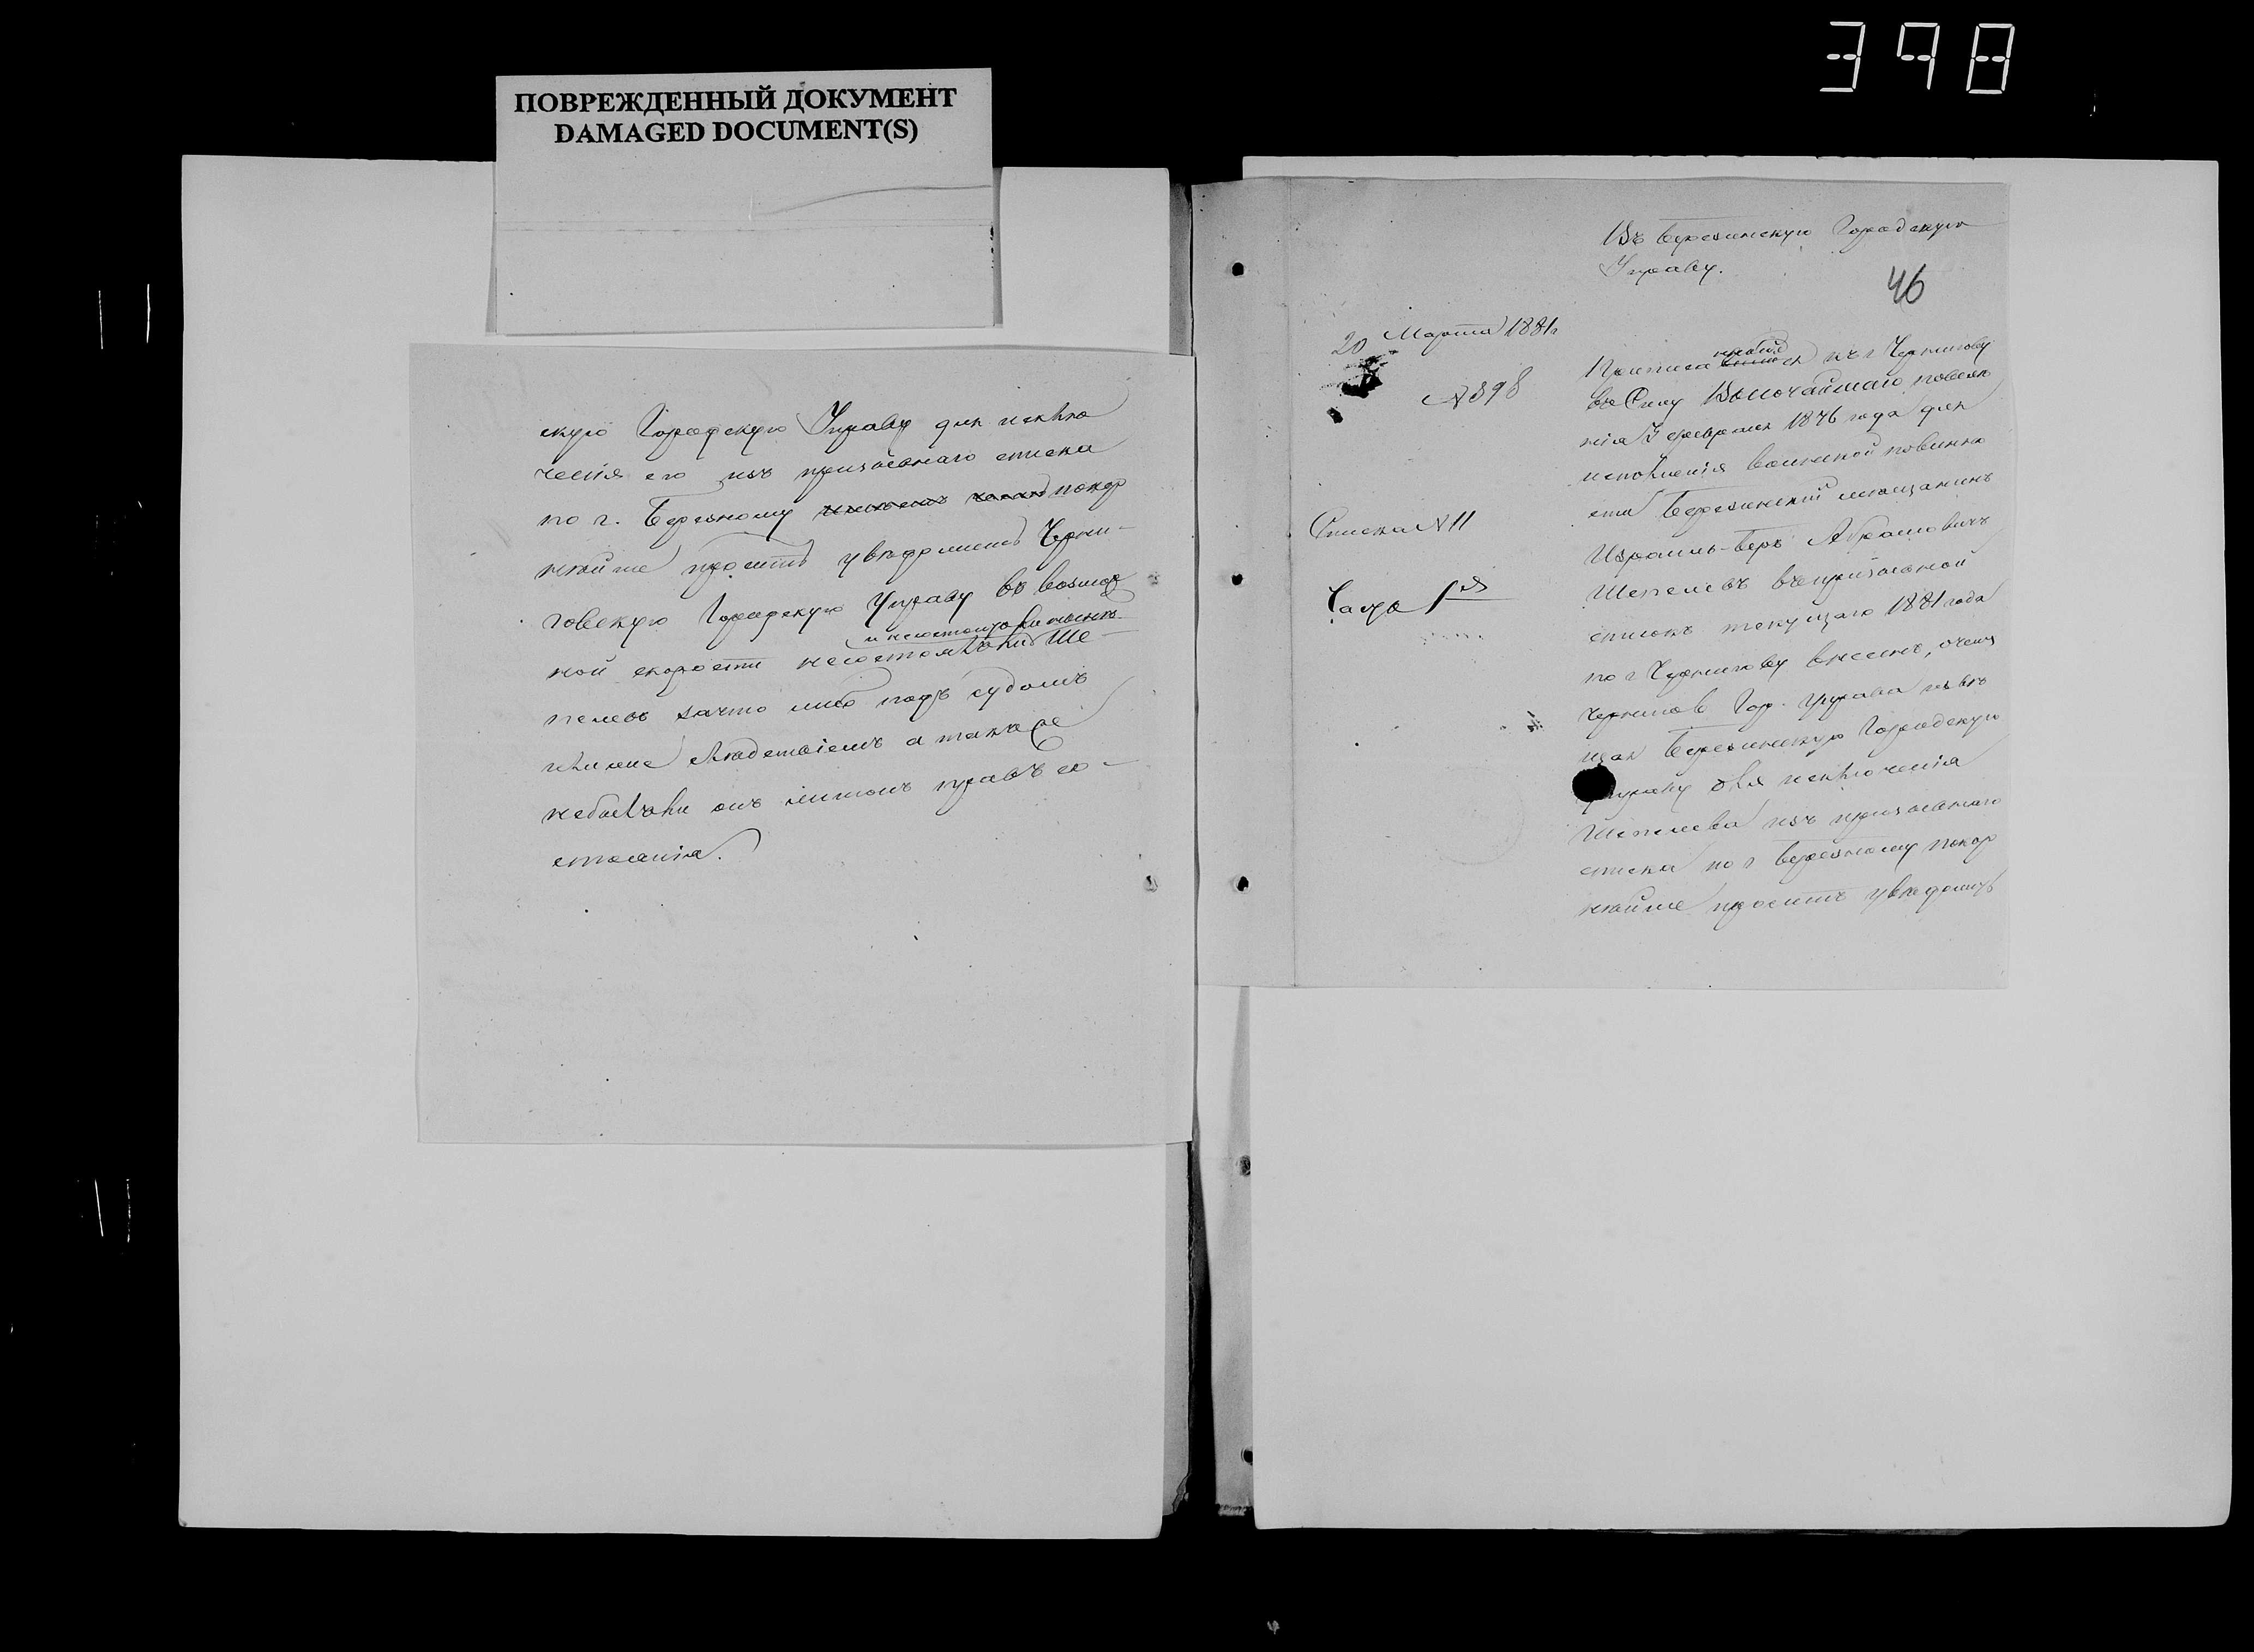 398
ПОВРЕЖДЕННЫЙ ДОКУМЕНТ
DAMAGED DOCUMENT(S)
скую Городскую Управу для исклю
ченія его изъ призывнаго списка
по г. Березному покор
нѣйше проситъ увѣдомить Черни-
говскую Городскую Управу въ возмож
и несостоитъ ли нынѣ
ной скорости несостоялъ ли Ше-
пелевъ зачто либо подъ судомъ
и а также
небылъ ли онъ лишонъ правъ со-
стоянія.
Въ Березинскую Городскую
Управу.
46
20 Марта 1881 г
№ 398
Списка № 11
1я
Приписа къ г Чернигову
въ Силу Высочайшаго повелѣ
нія 3 февраля 1876 года для
исполненія воинской повинно
сти Березинскій мещанинъ
Израиль-Беръ Абрамовичъ
Шепелевъ въ призывной
списокъ текущаго 1881 года
по г Чернигову внесенъ, о чемъ
Чернигов Гор. Управа извѣ
щая Березинскую Городскую
Управу для исключенія
Шепелева изъ призывнаго
списка по г Березному покор
нѣйше проситъ увѣдомить